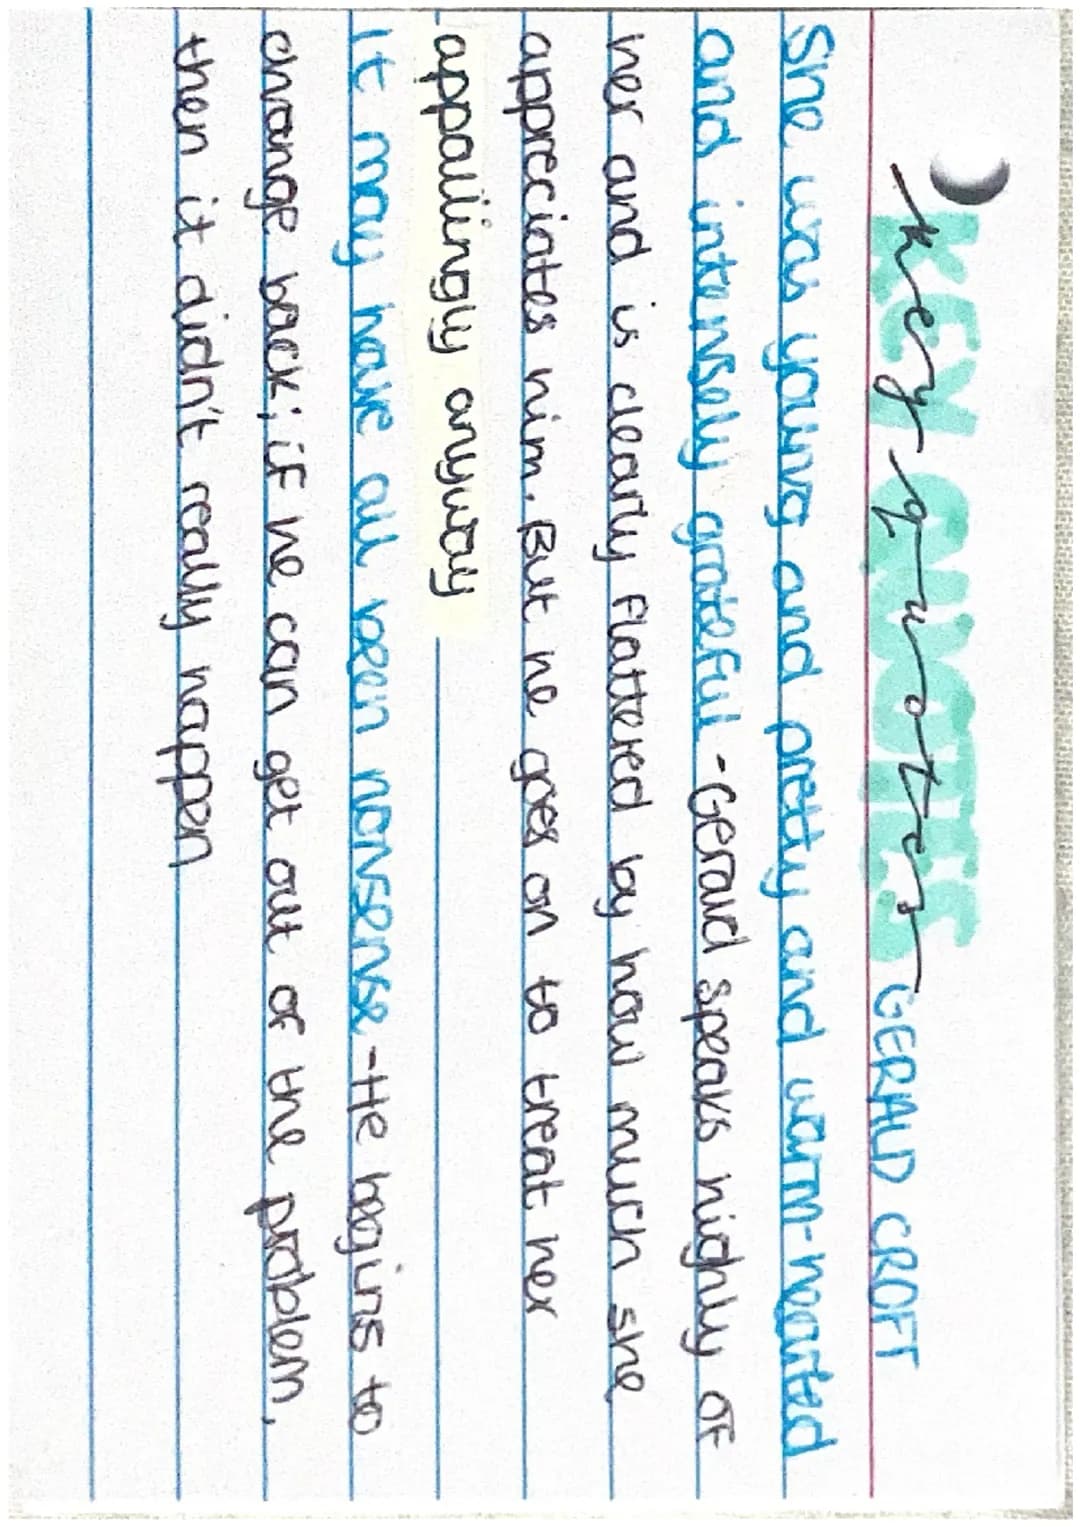 KEY QUOTES
key quotes GERALD CROFT
She was young and pretty and warm-hearted
and intensely grateful - Gerald speaks highly of
her and is clearly flattered by how much she
appreciates him. But he goes on to treat her
appallingly anyway
It may have all been nonsense - He begins to
change back; if he can get out of the problem,
then it didn't really happen